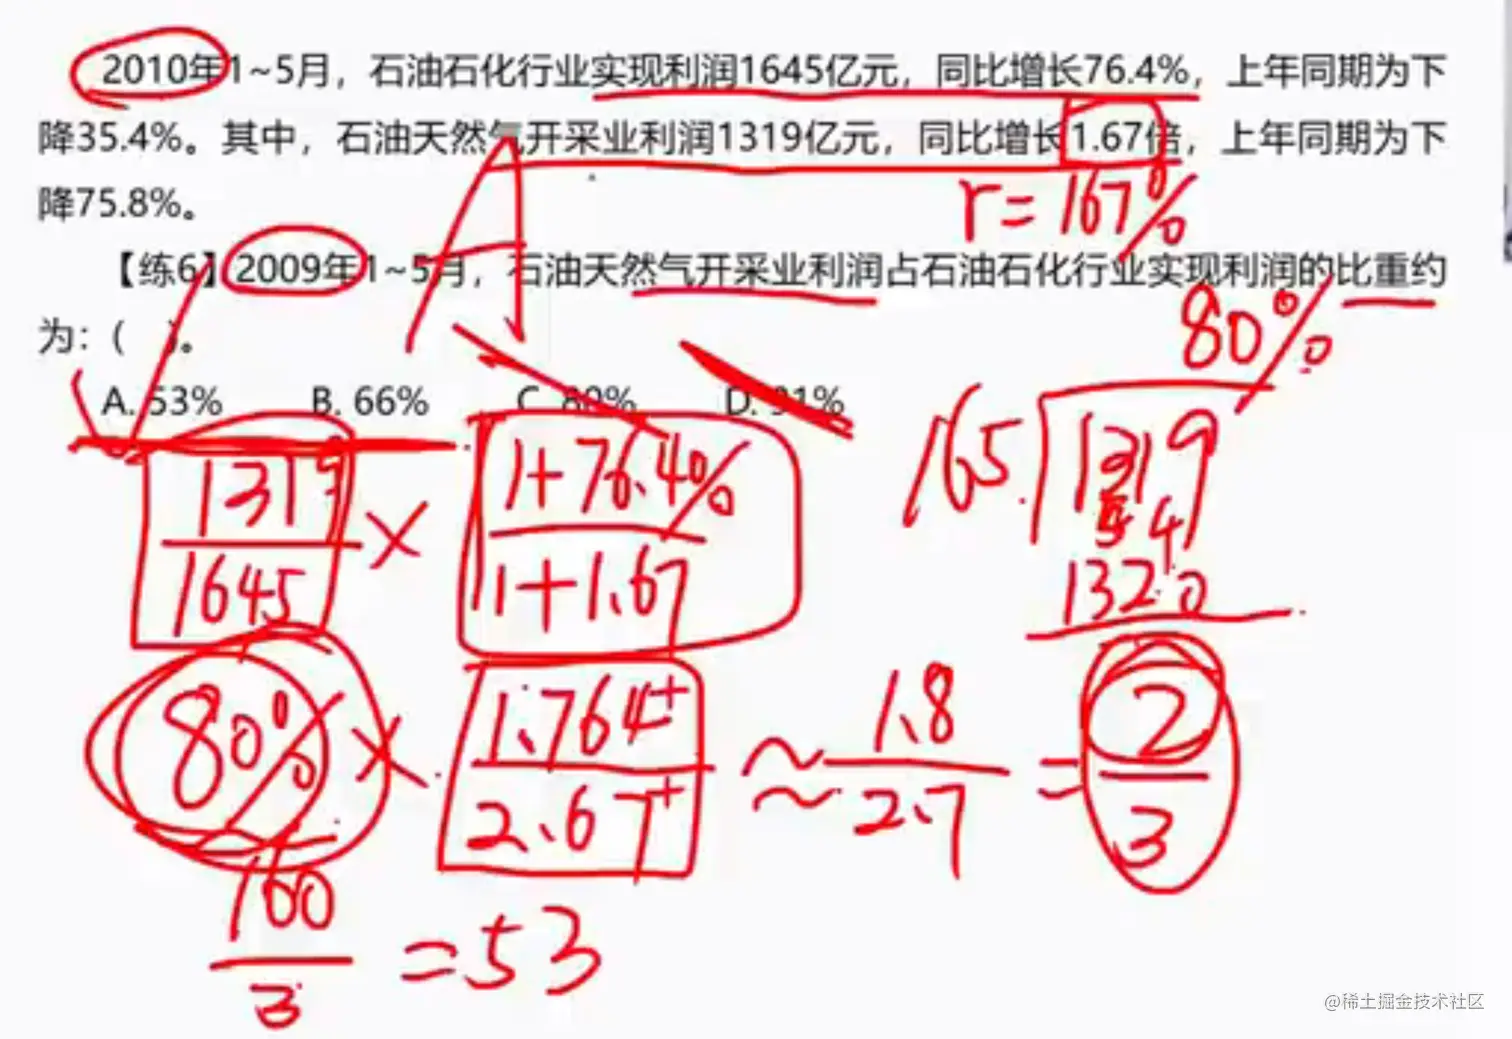 2010年1~5月，石油石化行业实现利润1645亿元，同比增长76.4%，上年同期为下
降35.4%。其中，石油天然气开采业利润1319亿元，同比增长1.67倍，上年同期为下
降75.8%。
r=167%
【练6】2009年1~5月，石油天然气开采业利润占石油石化行业实现利润的比重约
为：（ ）。
80%
A. 53% B. 66% C. 80% D. 91%
1319/1645 × 1+76.4%/1+1.67
165 1319
1320
80% × 1.764+/2.67+ ≈ 1.8/2.7 = 2/3
160/3 = 53
@稀土掘金技术社区